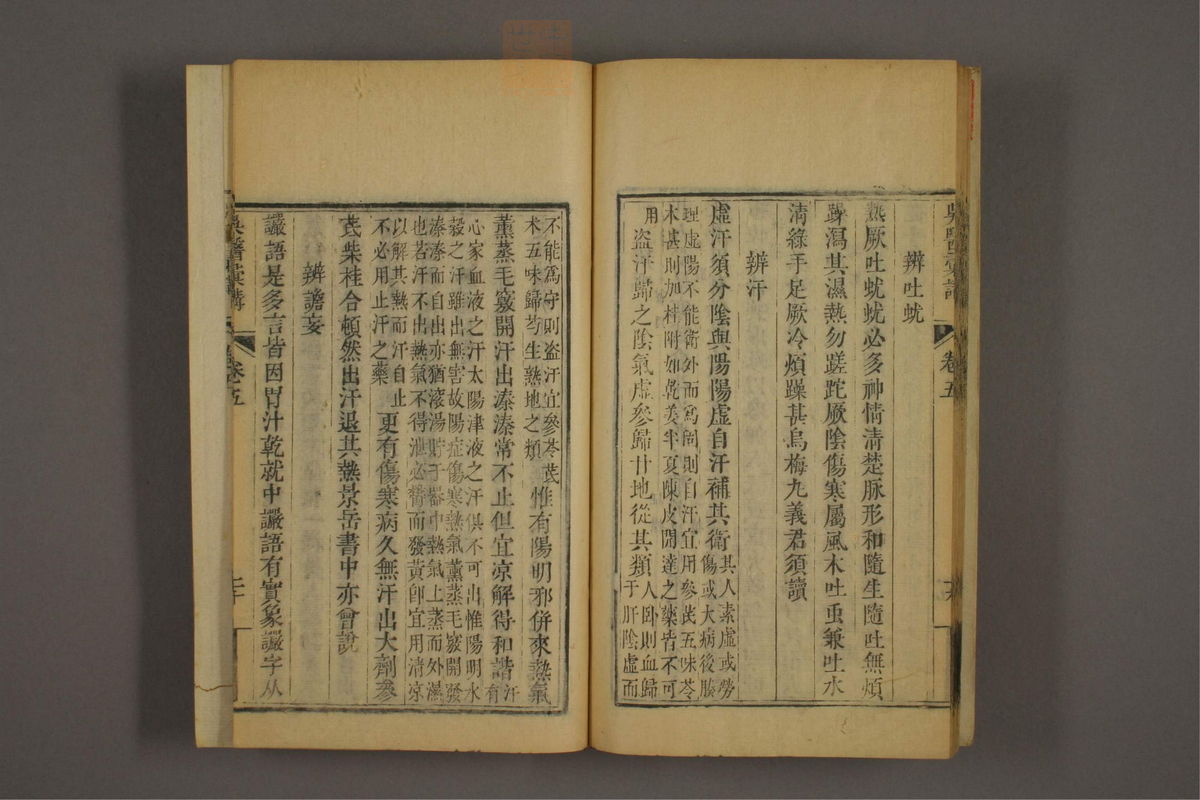 辨吐蚘
熱厥吐蚘蚘必多神情清楚脉形和隨生隨吐無煩
躁瀉其濕熱勿蹉跎厥陰傷寒屬風木吐虫兼吐水
清綠手足厥冷煩躁甚烏梅九義君須讀
辨汗
虛汗須分陰與陽陽虛自汗補其衛
其人素虛或勞
傷或大病後腠
理虛陽不能衛外而爲固則自汗宜用參芪五味苓
术甚則加桂附如乾姜半夏陳皮開達之藥皆不可
用
盜汗歸之陰氣虛參歸甘地從其類
人卧則血歸
于肝陰虛而
不能爲守則盜汗宜參苓芪
术五味歸芍生熟地之類
惟有陽明邪併來熱氣
薰蒸毛竅開汗出溱溱常不止但宜凉解得和諧
汗
有
心家血液之汗太陽津液之汗俱不可出惟陽明水
穀之汗雖出無害故陽症傷寒熱氣薰蒸毛竅開發
溱溱而自出亦猶滾湯貯于器中熱氣上蒸而外濕
也若汗不出熱氣不得泄必瞀而發黃卽宜用清凉
以解其熱而汗自止
不必用止汗之藥
更有傷寒病久無汗出大劑參
芪柴桂合頓然出汗退其熱景岳書中亦曾說
辨譫妄
讝語是多言皆因胃汁乾就中讝語有實象讝字从
卷五
吳醫彙講
卷五